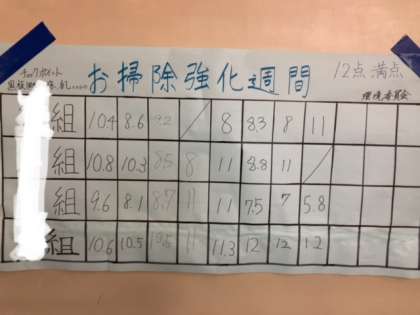 チェックポイント
お掃除強化週間
12点満点
環境委員会
組 10.4 8.6 9.2 / 8 8.3 8 11
組 10.8 10.3 8.5 8 11 8.8 11 /
組 9.6 8.1 8.7 11 11 7.5 7 5.8
組 10.6 10.5 10.5 11 11.3 12 12 12